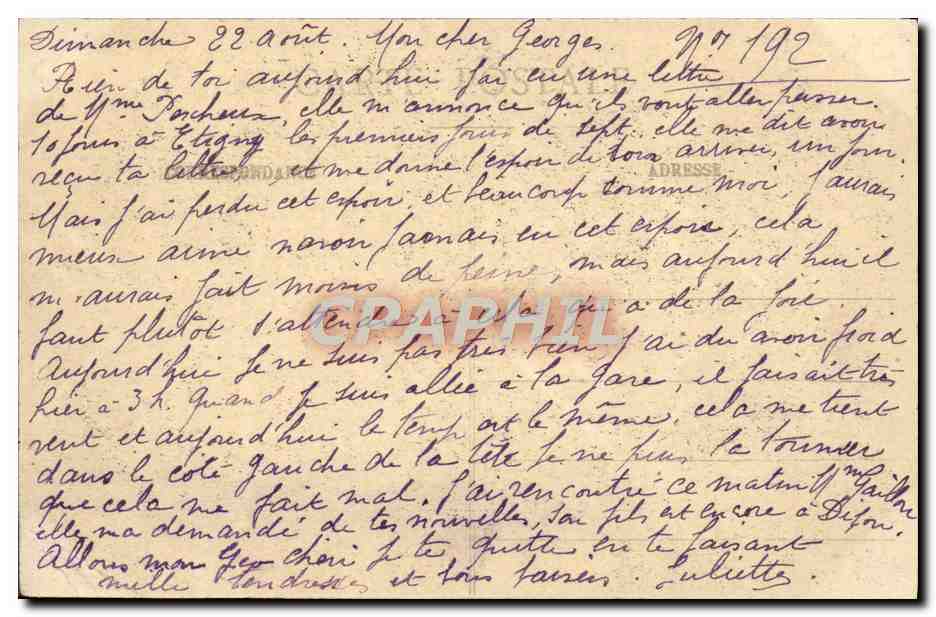 Dimanche 22 août. Mon cher Georges. No 192
CARTE POSTALE
Rien de toi aujourd'hui j'ai eu une lettre
de Mme Percheux, elle m'annonce qu'ils vont aller passer
10 jours à Etigny les premiers jours de sept. elle me dit avoir
reçu ta lettre, et me donne l'espoir de te voir arriver, un jour.
CORRESPONDANCE
ADRESSE
Mais j'ai perdu cet espoir et beaucoup comme moi, j'aurais
mieux aimé n'avoir jamais eu cet espoir, cela
m'aurais fait moins de peine, mais aujourd'hui il
faut plutôt s'attendre à cela qu'à de la joie.
CPAPHIL
Aujourd'hui je ne suis pas très bien j'ai du avoir froid
hier à 3 h. quand je suis allée à la gare, il faisait très
vent et aujourd'hui le temps est le même. cela me tient
dans le côté gauche de la tête je ne puis la tourner
que cela me fait mal. J'ai rencontré ce matin Mme Gaillon
elle m'a demandé de tes nouvelles, son fils est encore à Dijon.
Allons mon Geo chéri je te quitte en te faisant
mille tendresses et bons baisers. Juliette.